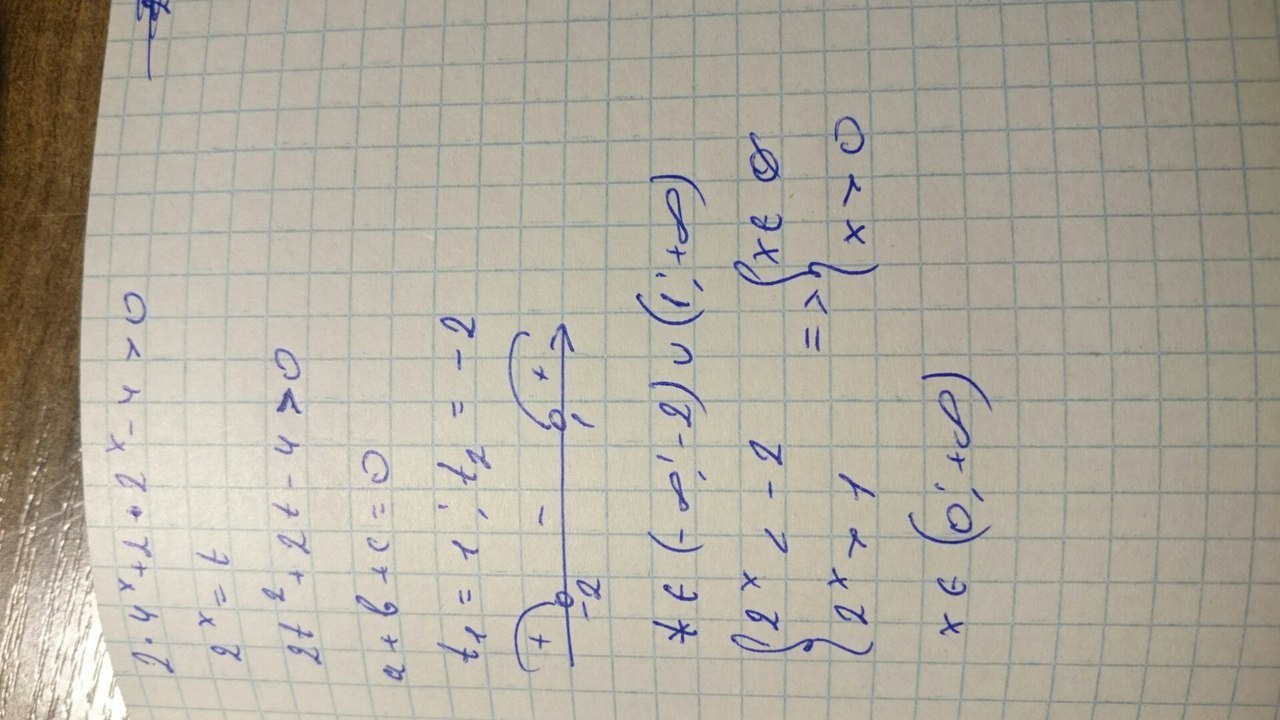 2·4ˣ+2·2ˣ-4>0
2ˣ=t
2t²+2t-4>0
a+b+c=0
t₁=1; t₂=-2
+ - +
-2 1
t∈(-∞;-2)∪(1;+∞)
{2ˣ<-2 {x∈∅
=>
{2ˣ>1 {x>0
x∈(0;+∞)